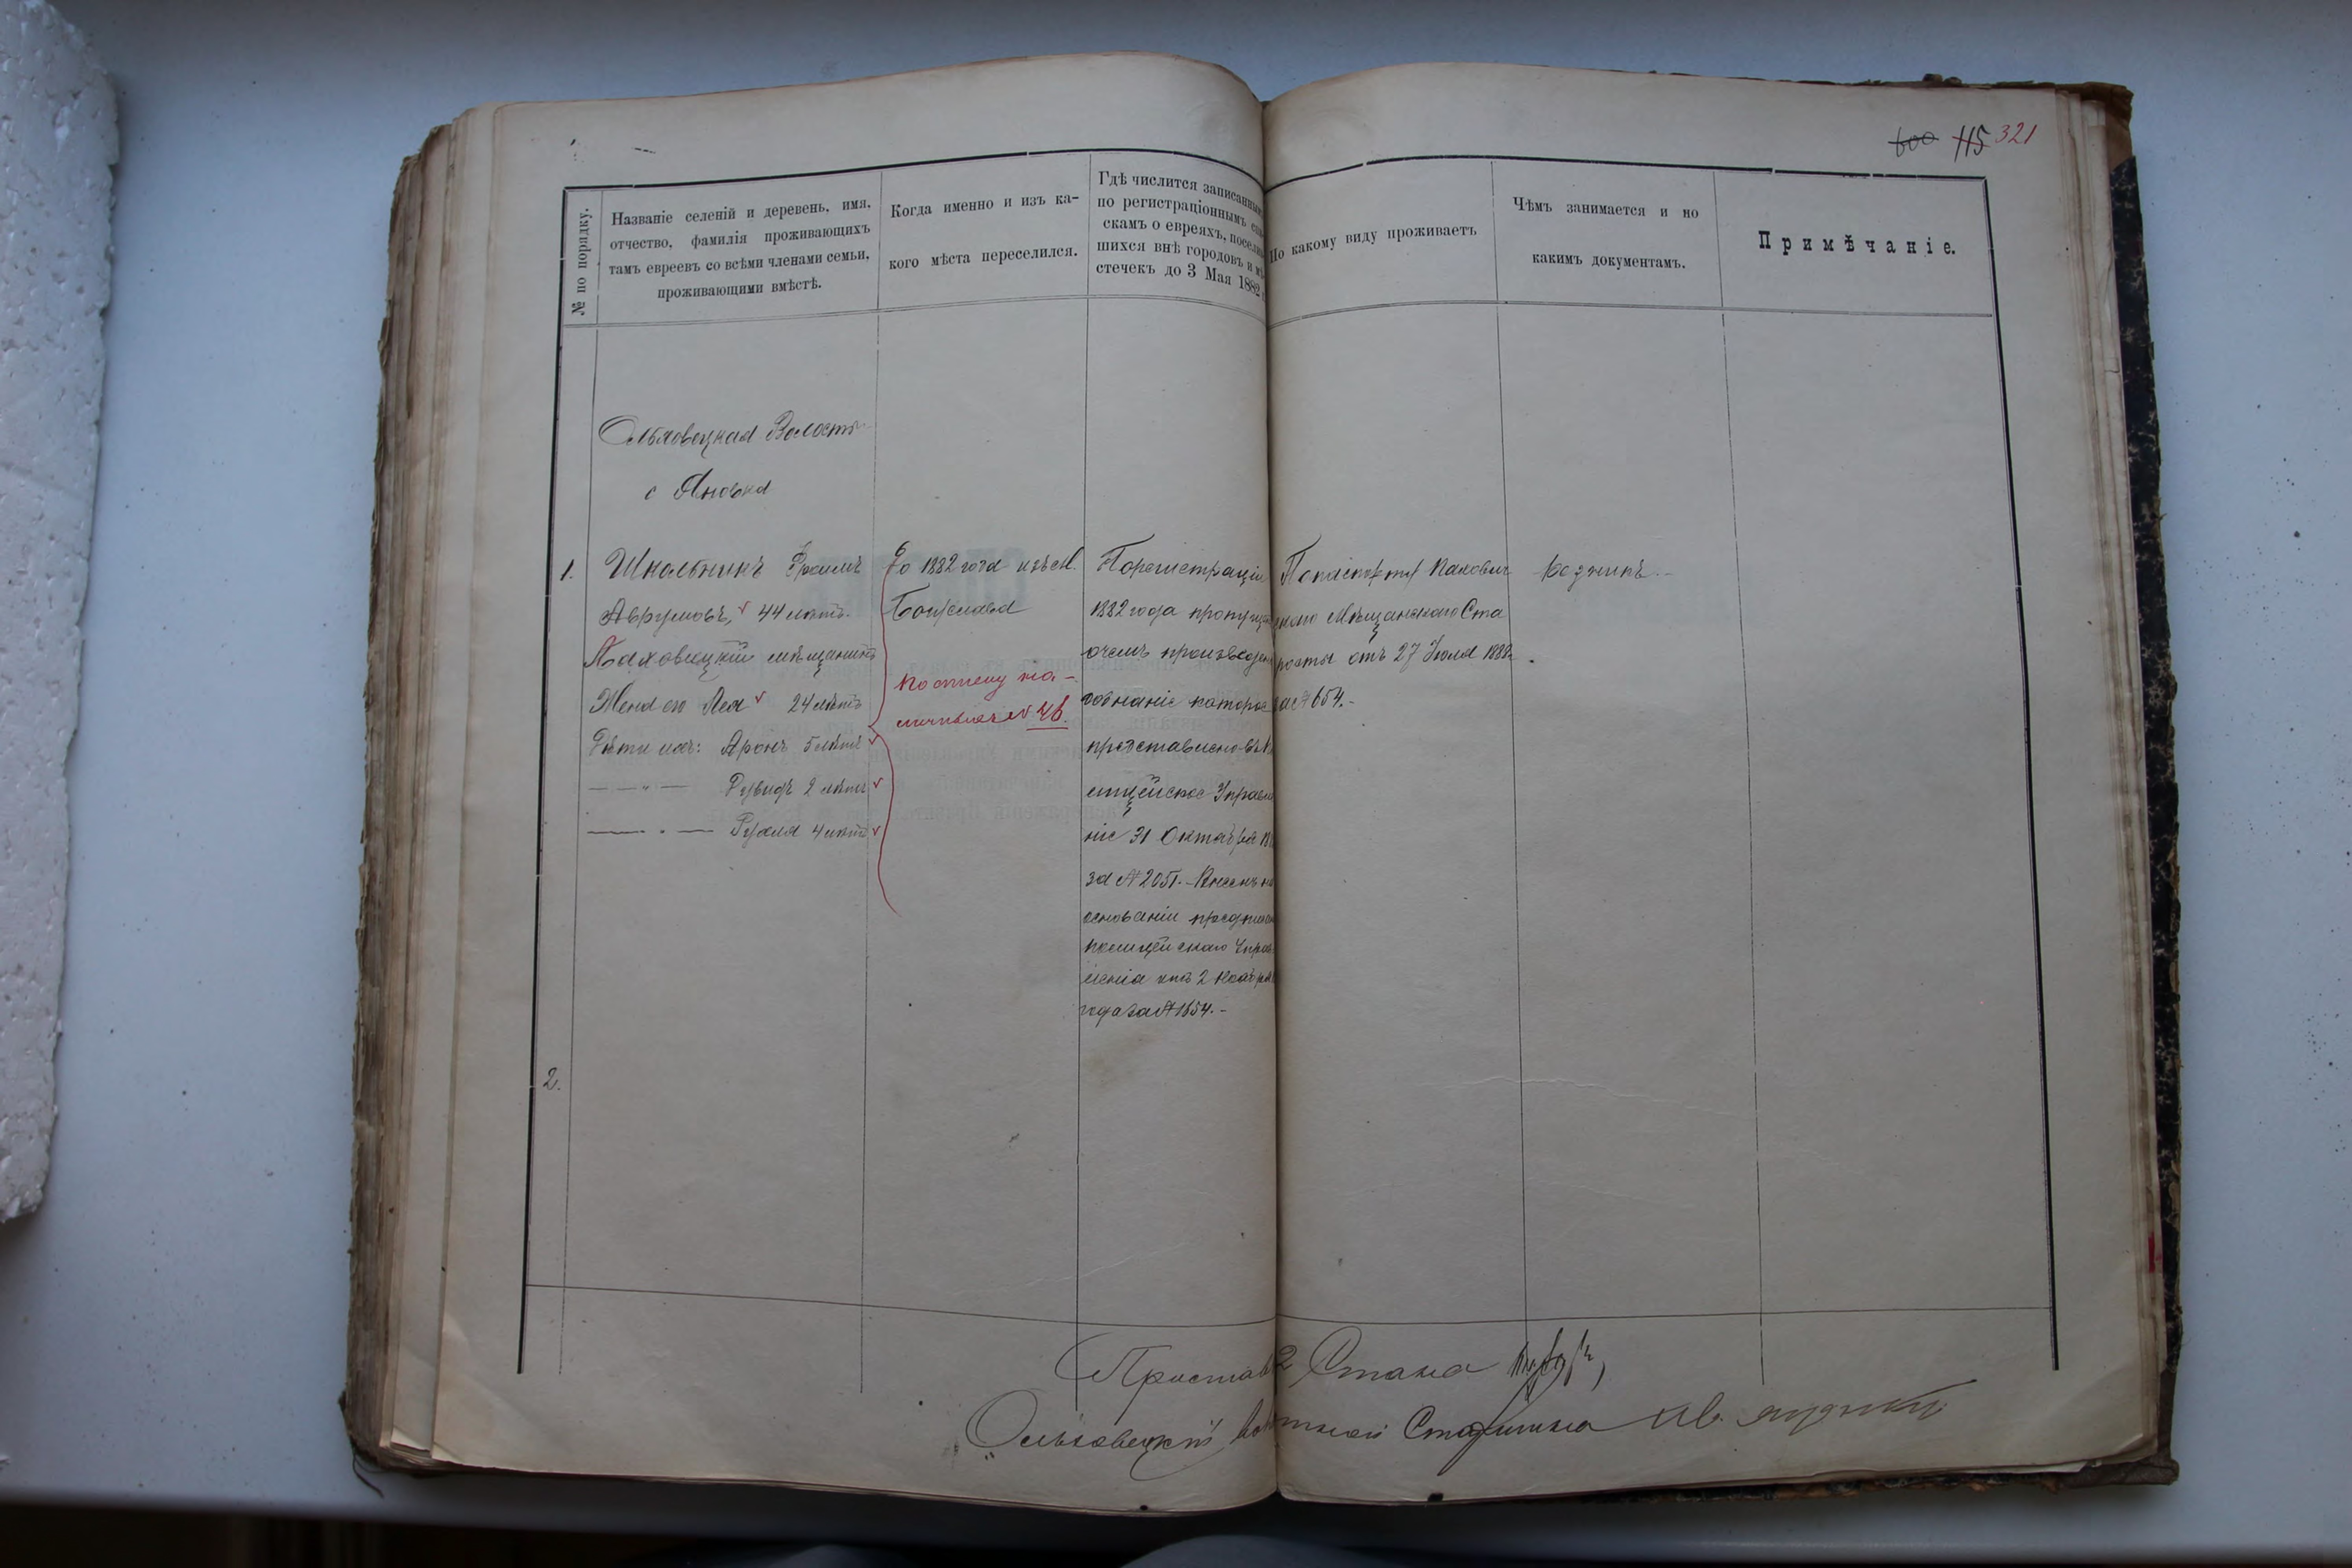 600 115 321
№ по порядку.
Названіе селеній и деревень, имя,
отчество, фамилія проживающихъ
тамъ евреевъ со всѣми членами семьи,
проживающими вмѣстѣ.
Когда именно и изъ ка-
кого мѣста переселился.
Гдѣ числится записаннымъ
по регистраціоннымъ спи-
скамъ о евреяхъ, посел
шихся внѣ городовъ и мѣ
стечекъ до 3 Мая 1882 г
По какому виду проживаетъ
Чѣмъ занимается и по
какимъ документамъ.
Примѣчаніе.
Ольховецкая Волость
с Яновка
1.
Школьникъ Фроимъ
Аврумовъ, 44 лѣтъ.
мѣщанинъ
Жена его Лея 24 лѣтъ
Дѣти ихъ: Аронъ 5 лѣтъ
— " — Рувидъ 2 лѣтъ
— " — Рухля 4 лѣтъ
До 1882 года изъ м.
Богуслава
по
№ 46.
По регистраціи
1882 года пропущ
о чемъ произведен
дознаніе которое
представлено въ По
лицейское Управле
ніе 31 Октября 18
за № 2051. Внесенъ на
основаніи предписан
полицейскаго Управ
ленія отъ 2 Ноября
года за № 1854.-
По паспорту
скаго Мѣщанскаго Ста
росты отъ 27 Іюля 1888 г.
за № 654.-
2.
Приставъ 2 Стана
Ольховецкій Волостной Старшина Ив.